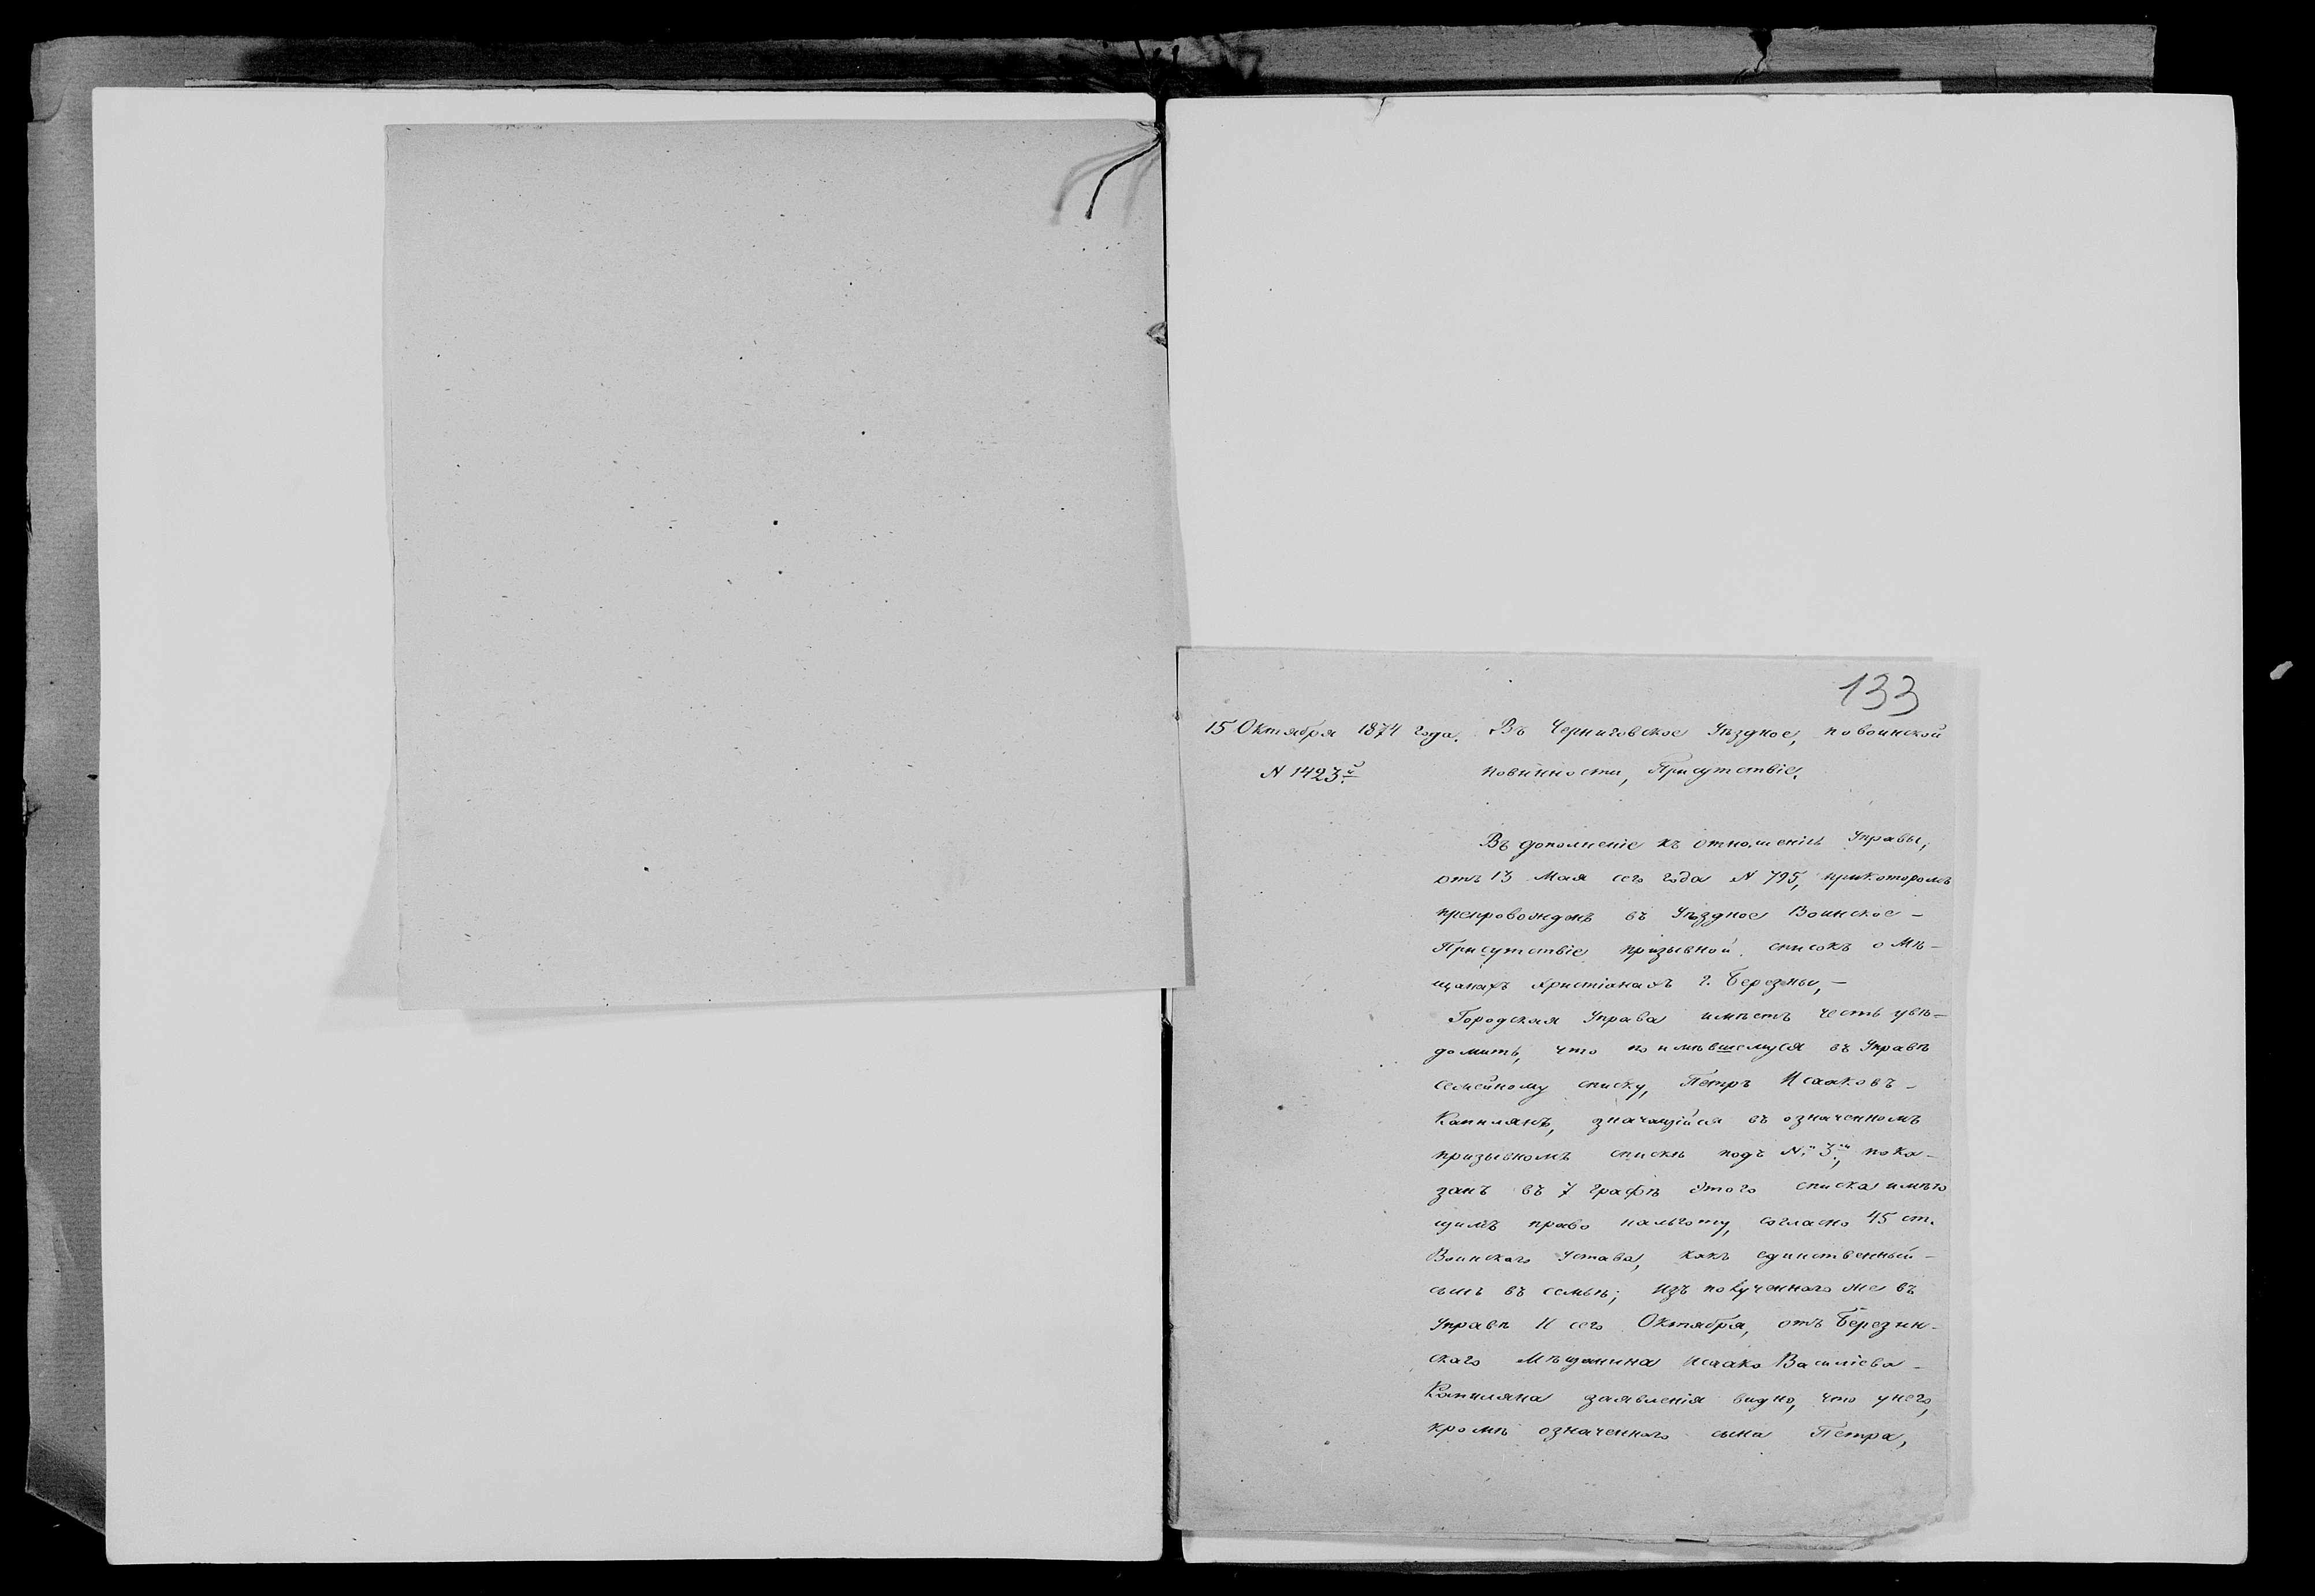 133
15 Октября 1874 года. Въ Черниговское Уѣздное, по воинской
N 1423й повинности, Присутствіе.
Въ дополненіе къ отношенію Управы,
отъ 13 Мая сего года N 795, при которомъ
препровожденъ въ Уѣздное Воинское –
Присутствіе призывной списокъ о Мѣ–
щанахъ Христіанахъ г. Березны, –
Городская Управа имѣетъ честь увѣ–
домить, что по имѣвшемуся въ Управѣ
семейному списку, Петръ Исааковъ –
Капилянъ, значащійся въ означенномъ
призывномъ спискѣ подъ N 3м, пока–
занъ въ 7 графѣ этого списка имѣю
щимъ право на льготу, согласно 45 ст.
Воинскаго Устава, какъ единственный –
сынъ въ семьѣ; изъ полученного же въ
Управѣ 11 сего Октября, отъ Березин–
скаго Мѣщанина Исаака Василіева –
Капиляна заявленія видно, что у него,
кромѣ означенного сына Петра,